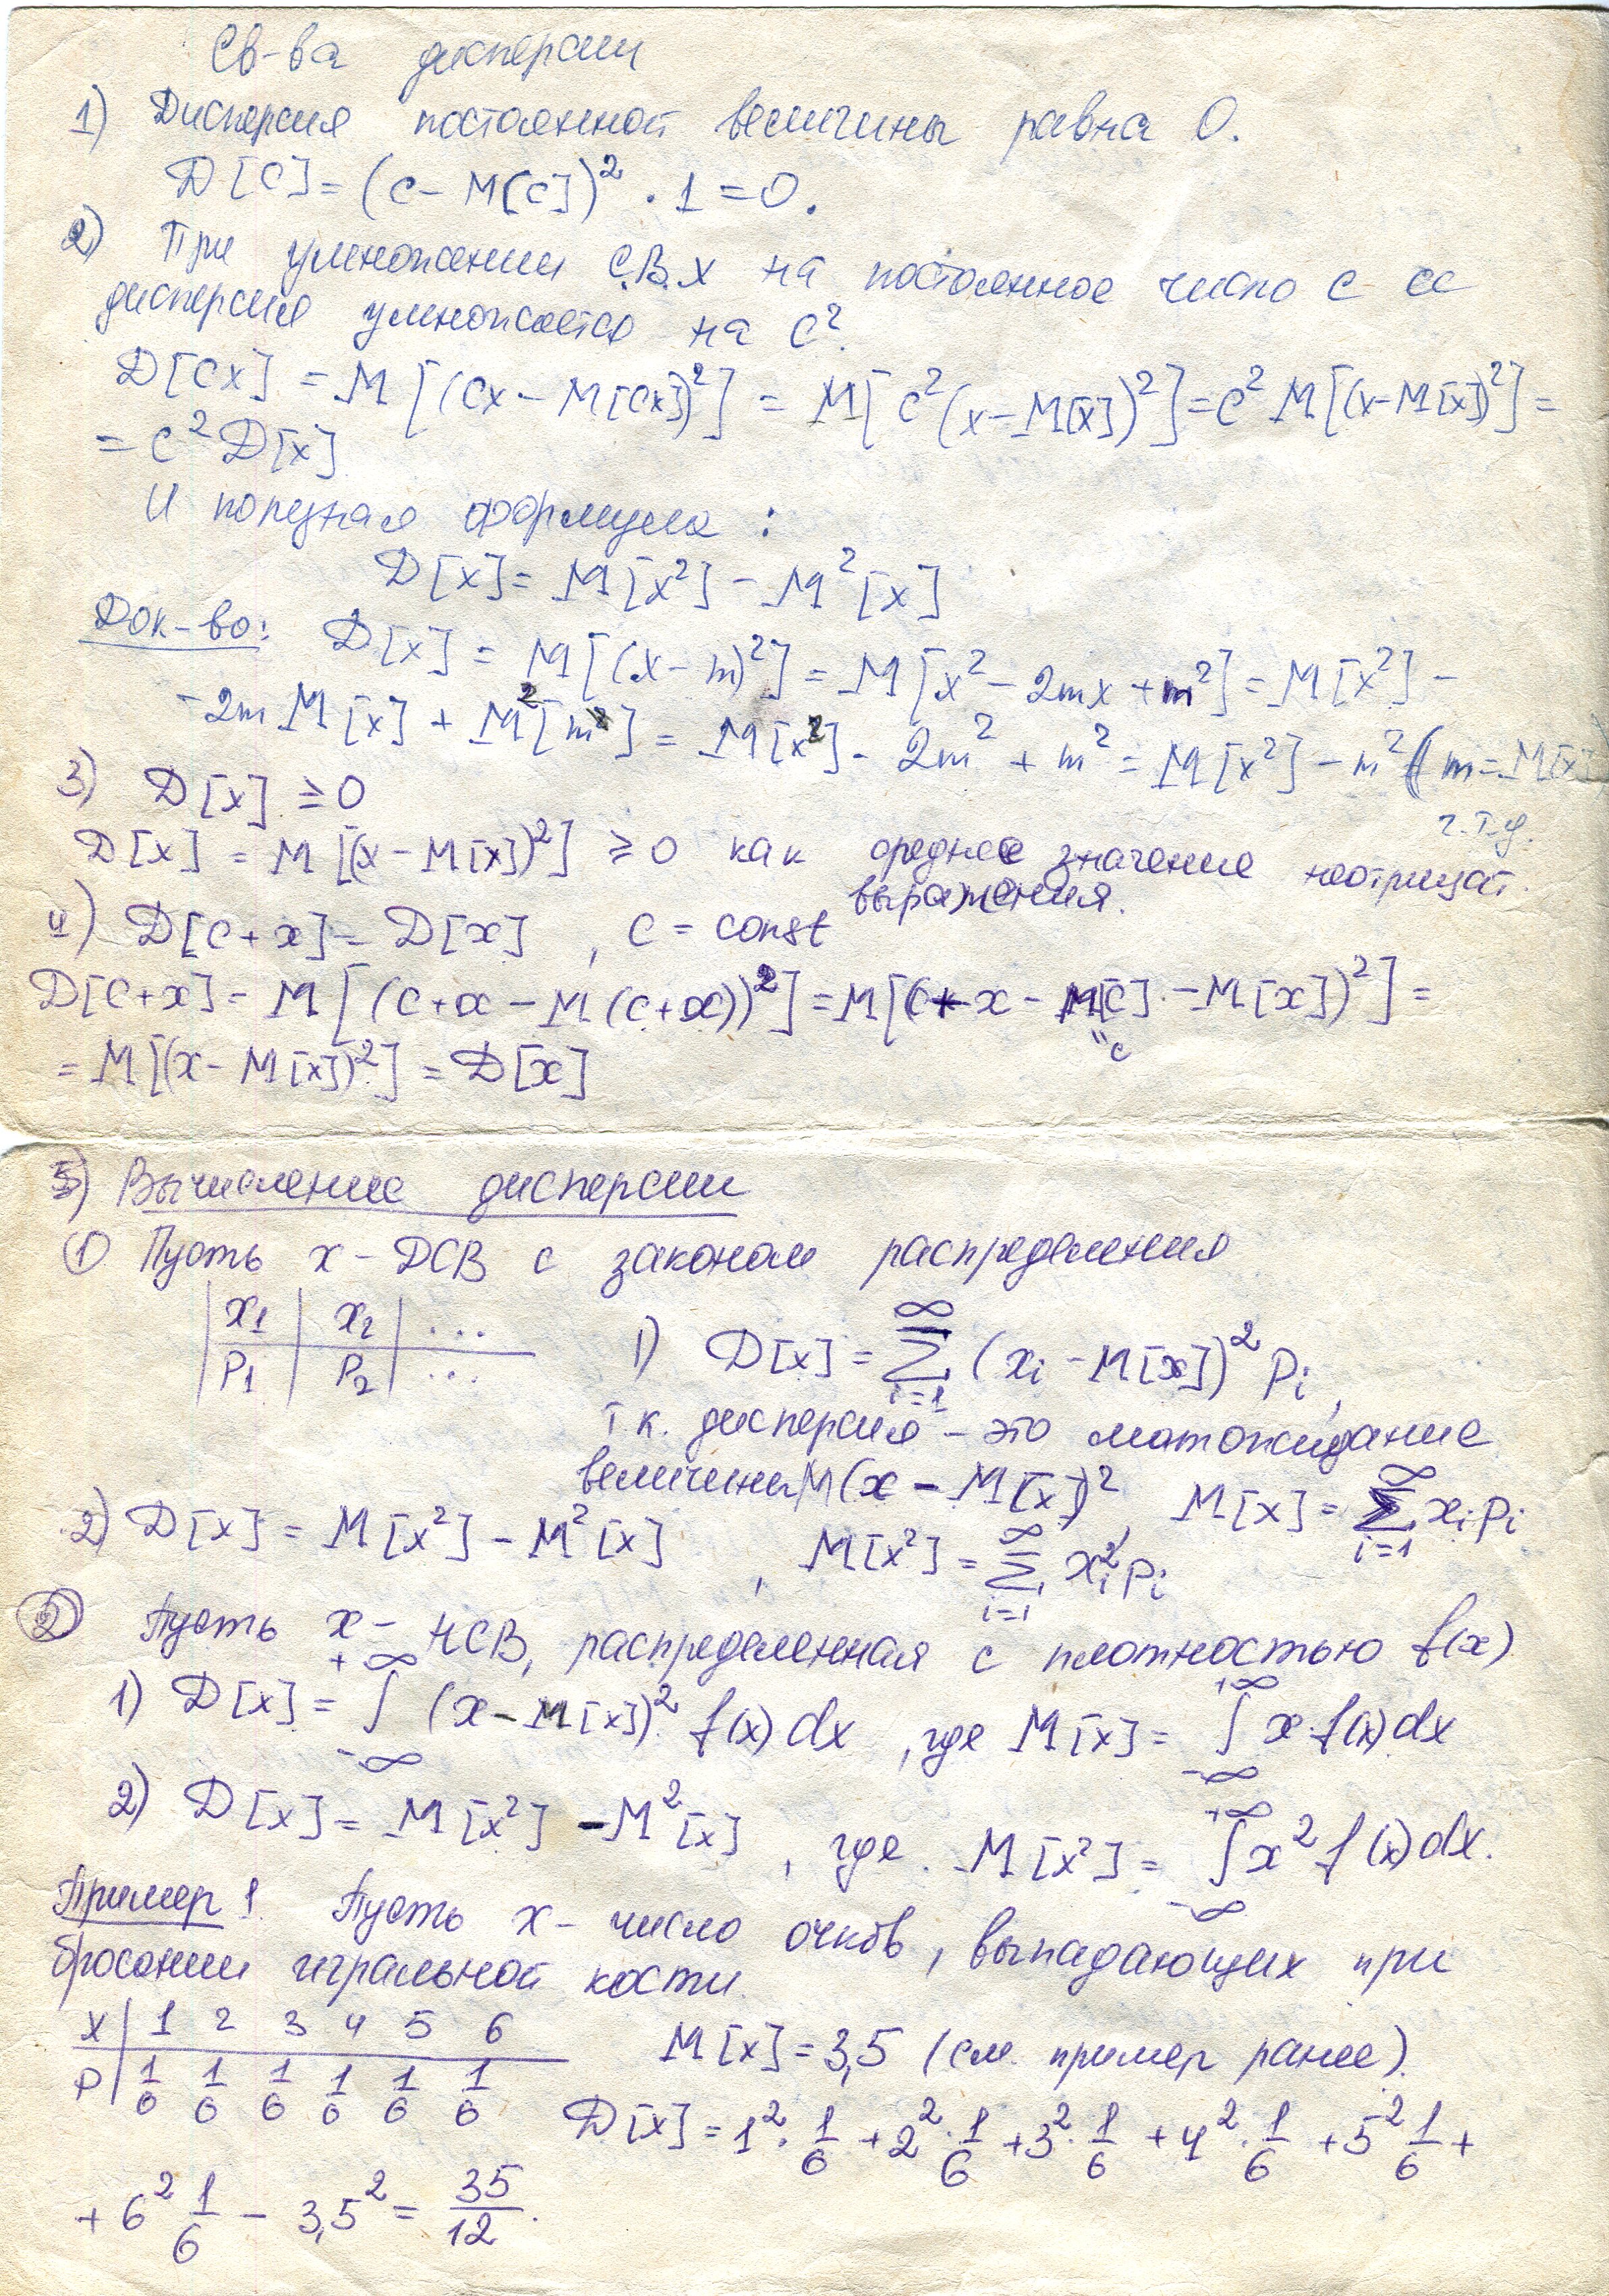 Св-ва дисперсии
1) Дисперсия постоянной величины равна 0.
D[c] = (c - M[c])² · 1 = 0.
2) При умножении С.В. X на постоянное число c ее
дисперсия умножается на c².
D[cx] = M[(cx - M[cx])²] = M[c²(x - M[x])²] = c² M[(x - M[x])²] =
= c² D[x]
И полезная формула :
D[x] = M[x²] - M²[x]
Док-во: D[x] = M[(x - m)²] = M[x² - 2mx + m²] = M[x²] -
- 2m M[x] + M²[m²] = M[x²] - 2m² + m² = M[x²] - m² (m = M[x])
ч.т.д.
3) D[x] ≥ 0
D[x] = M[(x - M[x])²] ≥ 0 как среднее значение неотрицат.
выражения.
4) D[c + x] = D[x] , c = const
D[c + x] = M[(c + x - M(c + x))²] = M[(c + x - M[c] - M[x])²] =
"c
= M[(x - M[x])²] = D[x]
5) Вычисление дисперсии
① Пусть x - ДСВ с законом распределения
x₁ | x₂ | ...
P₁ | P₂ | ...
1) D[x] = ∑_{i=1}^{∞} (xᵢ - M[x])² Pᵢ ,
т.к. дисперсия - это матожидание
величины M(x - M[x])² M[x] = ∑_{i=1}^{∞} xᵢpᵢ
2) D[x] = M[x²] - M²[x] , M[x²] = ∑_{i=1}^{∞} xᵢ²pᵢ
② Пусть x - НСВ, распределенная с плотностью f(x)
1) D[x] = ∫_{-∞}^{+∞} (x - M[x])² f(x) dx , где M[x] = ∫_{-∞}^{+∞} x f(x) dx
2) D[x] = M[x²] - M²[x] , где M[x²] = ∫_{-∞}^{+∞} x² f(x) dx.
Пример 1. Пусть x - число очков, выпадающих при
бросании игральной кости.
X | 1 2 3 4 5 6
P | 1/6 1/6 1/6 1/6 1/6 1/6
M[x] = 3,5 (см. пример ранее).
D[x] = 1² · 1/6 + 2² · 1/6 + 3² · 1/6 + 4² · 1/6 + 5² 1/6 +
+ 6² 1/6 - 3,5² = 35/12.